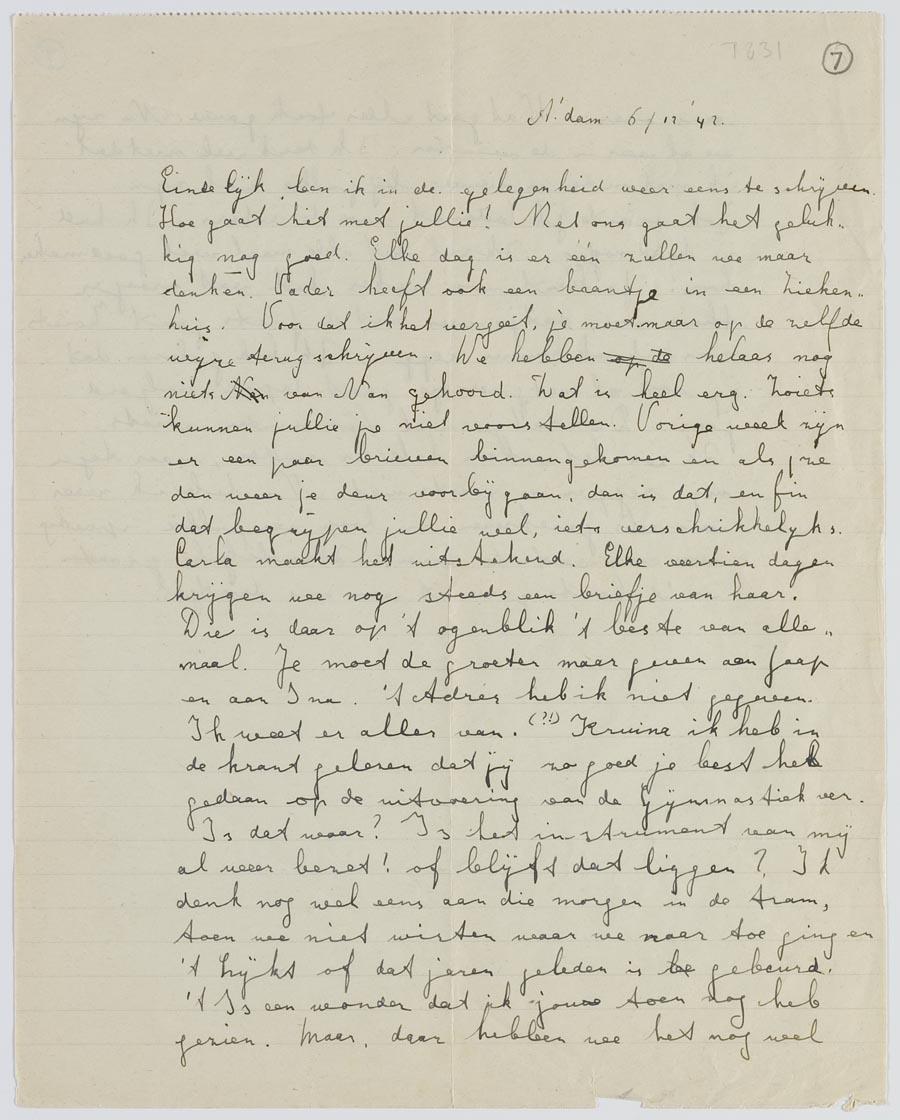 T831
7
A'dam 6/12 '42.
Eindelijk ben ik in de gelegenheid weer eens te schrijven.
Hoe gaat het met jullie! Met ons gaat het geluk„
kig nog goed. Elke dag is er één zullen we maar
denken. Vader heeft ook een baantje in een zieken„
huis. Voor dat ik het vergeet, je moet maar op de zelfde
wijze terug schrijven. We hebben op de helaas nog
niets Nan van Nan gehoord. Dat is heel erg. Zoiets
kunnen jullie je niet voorstellen. Vorige week zijn
er een paar brieven binnengekomen en als ze
dan weer je deur voorbij gaan, dan is dat, enfin
dat begrijpen jullie wel, iets verschrikkelijks.
Carla maakt het uitstekend. Elke veertien dagen
krijgen we nog steeds een briefje van haar.
Die is daar op 't ogenblik 't beste van alle„
maal. Je moet de groeten maar geven aan Jaap
en aan Ina. 't Adres heb ik niet gegeven.
Ik weet er alles van. (?!) Kruina ik heb in
de krant gelezen dat jij zo goed je best heb
gedaan op de uitvoering van de Gijmnastiek ver.
Is dat waar? Is het instrument van mij
al weer bezet! of blijft dat liggen? Ik
denk nog wel eens aan die morgen in de tram,
toen we niet wisten waar we naar toe gingen
't Lijkt of dat jaren geleden is be gebeurd.
't Is een wonder dat ik jouw toen nog heb
gezien. Maar, daar hebben we het nog wel